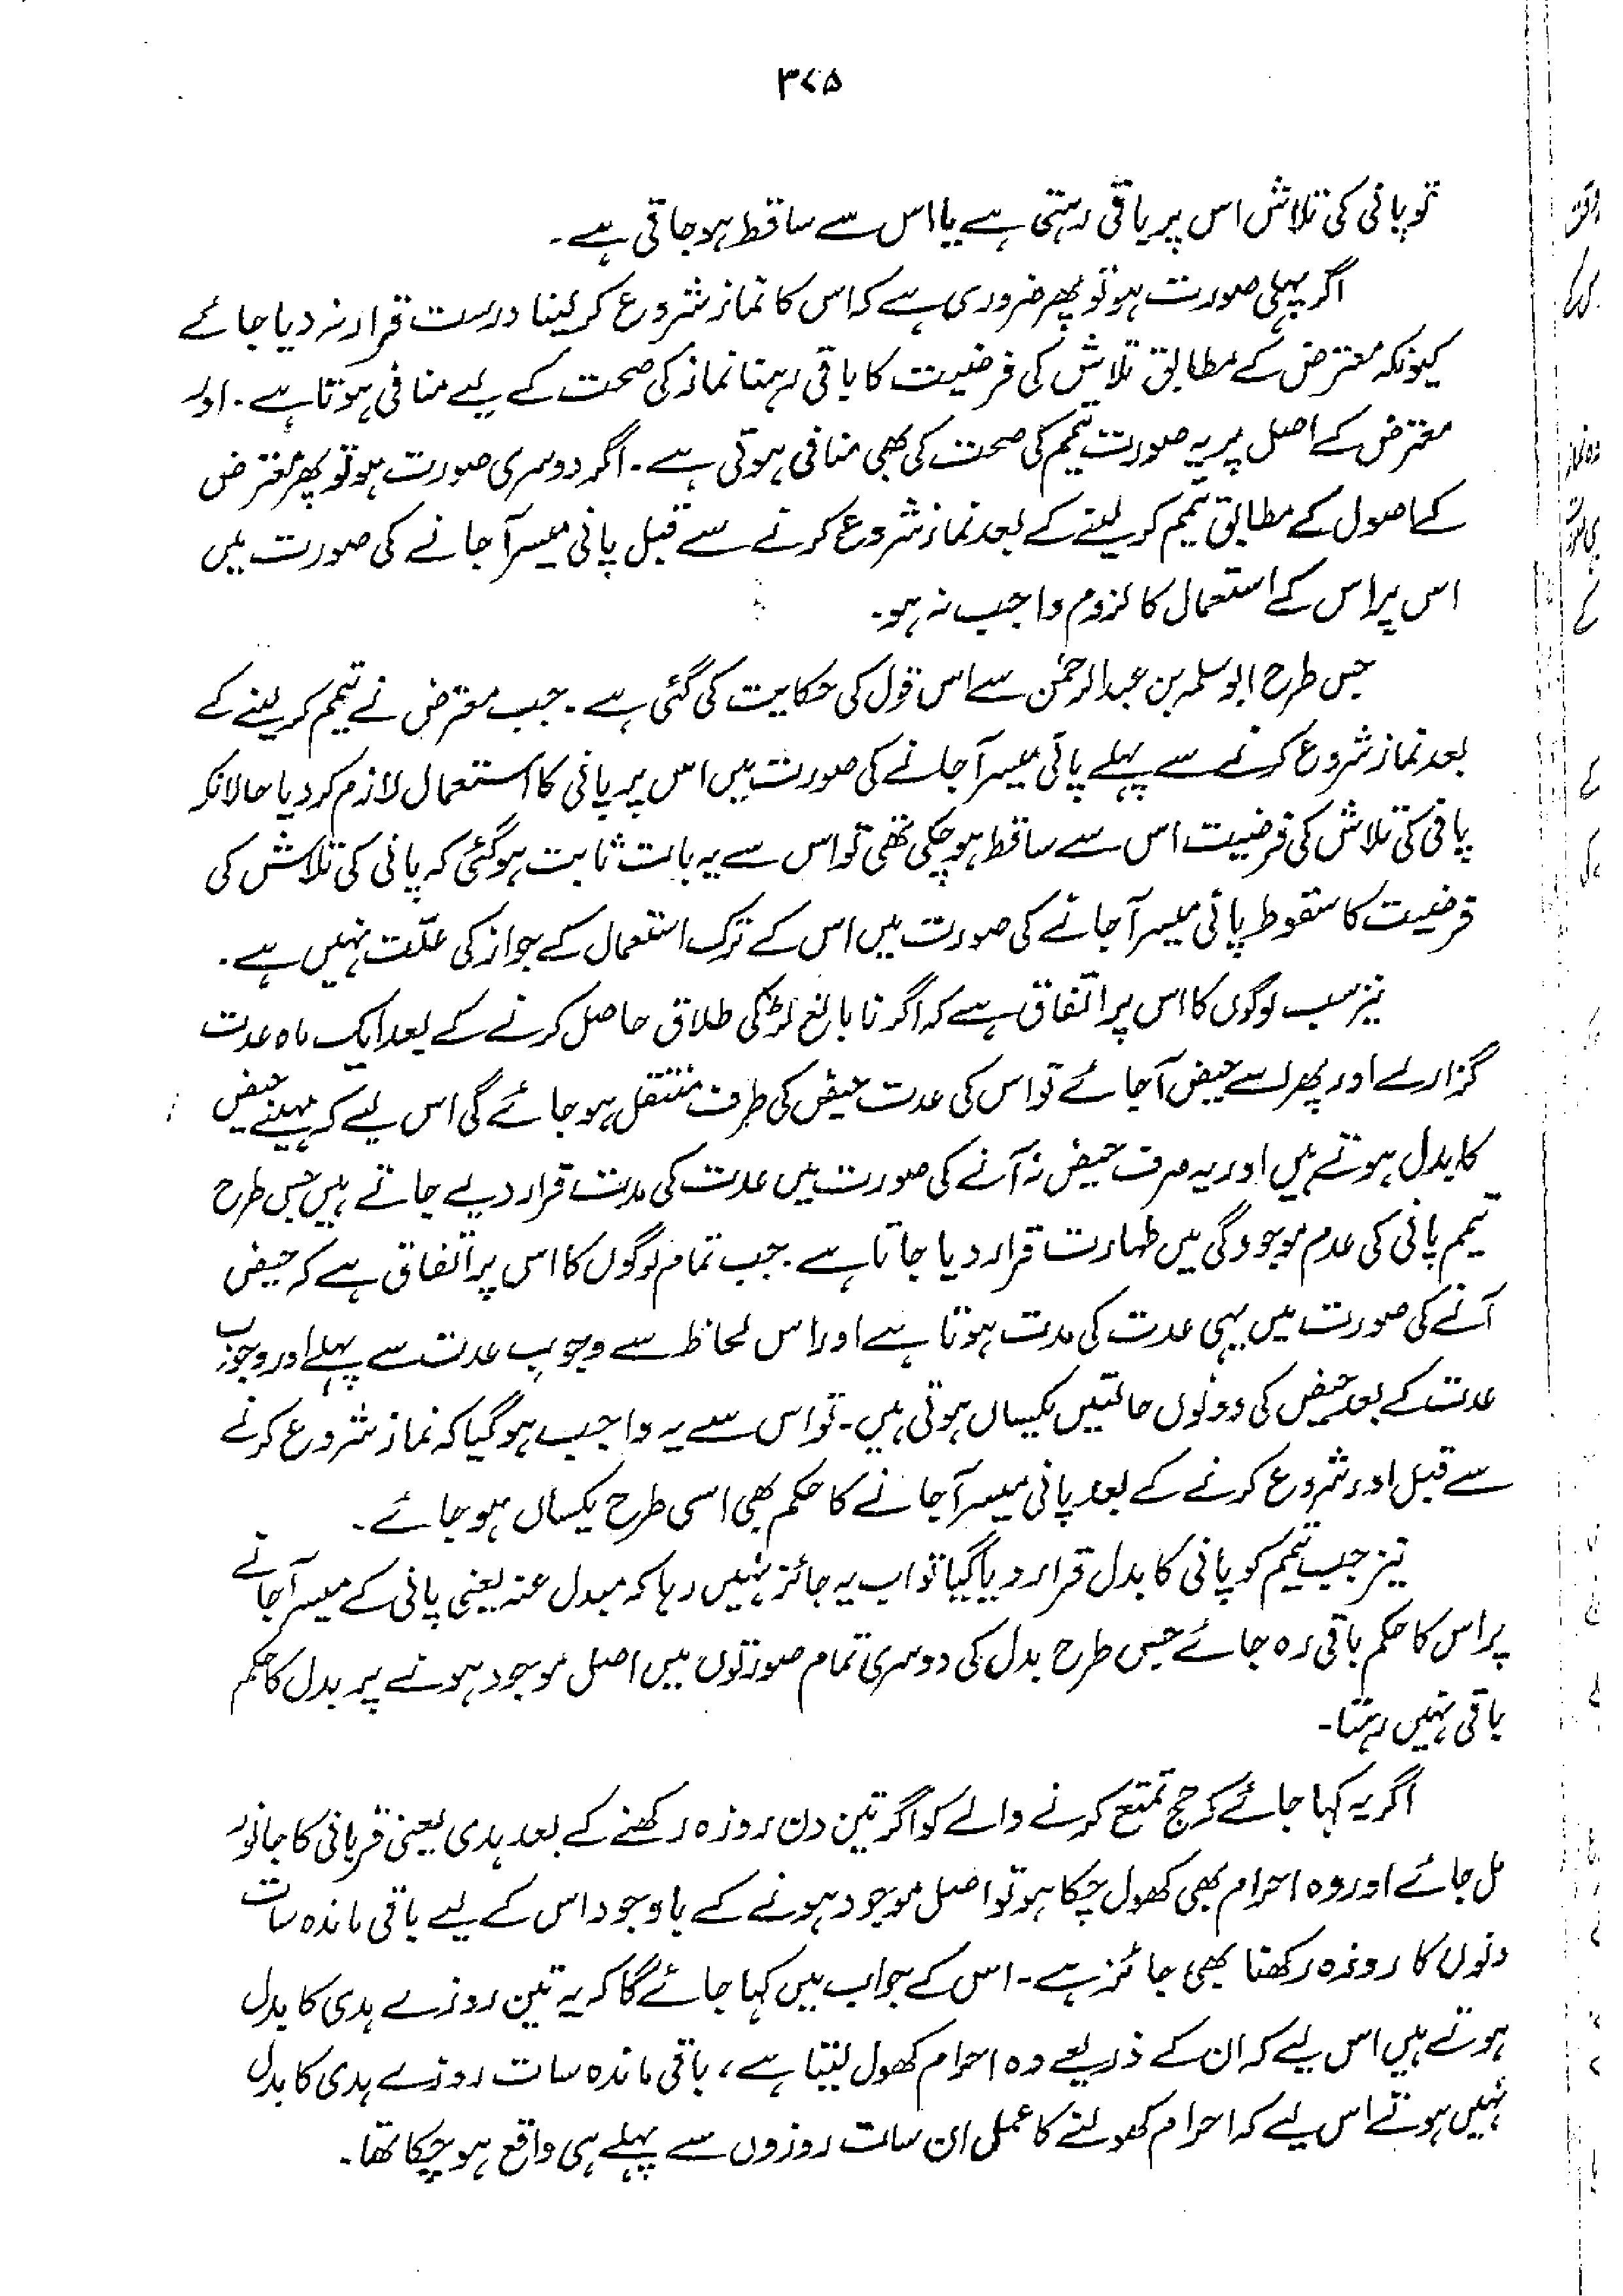 ۳۷۵
تو پانی کی تلاش اس پر باقی رہتی ہے یا اس سے ساقط ہو جاتی ہے۔
اگر پہلی صورت ہو تو پھر ضروری ہے کہ اس کا نماز شروع کر لینا درست قرار نہ دیا جائے
کیونکہ معترض کے مطابق تلاش کی فرضیت کا باقی رہنا نماز کی صحت کے لیے منافی ہوتا ہے۔ اور
معترض کے اصل پر یہ صورت تیمم کی صحت کی بھی منافی ہوتی ہے۔ اگر دوسری صورت ہو تو پھر معترض
کے اصول کے مطابق تیمم کر لینے کے بعد نماز شروع کرنے سے قبل پانی میسر آ جانے کی صورت میں
اس پر اس کے استعمال کا لزوم واجب نہ ہو۔
جس طرح ابو سلمہ بن عبدالرحمٰن سے اس قول کی حکایت کی گئی ہے۔ جب معترض نے تیمم کر لینے کے
بعد نماز شروع کرنے سے پہلے پانی میسر آ جانے کی صورت میں اس پر پانی کا استعمال لازم کر دیا حالانکہ
پانی کی تلاش کی فرضیت اس سے ساقط ہو چکی تھی تو اس سے یہ بات ثابت ہو گئی کہ پانی کی تلاش کی
فرضیت کا سقوط پانی میسر آ جانے کی صورت میں اس کے ترک استعمال کے جواز کی علّت نہیں ہے۔
نیز سب لوگوں کا اس پر اتفاق ہے کہ اگر نابالغ لڑکی طلاق حاصل کرنے کے بعد ایک ماہ عدت
گزار لے اور پھر اسے حیض آ جائے تو اس کی عدت حیض کی طرف منتقل ہو جائے گی اس لیے کہ مہینے حیض
کا بدل ہوتے ہیں اور یہ صرف حیض نہ آنے کی صورت میں عدت کی مدت قرار دیے جاتے ہیں جس طرح
تیمم پانی کی عدم موجودگی میں طہارت قرار دیا جاتا ہے۔ جب تمام لوگوں کا اس پر اتفاق ہے کہ حیض
آنے کی صورت میں یہی عدت کی مدت ہوتا ہے اور اس لحاظ سے وجوب عدت سے پہلے اور وجوب
عدت کے بعد حیض کی دونوں حالتیں یکساں ہوتی ہیں۔ تو اس سے یہ واجب ہو گیا کہ نماز شروع کرنے
سے قبل اور شروع کرنے کے بعد پانی میسر آ جانے کا حکم بھی اسی طرح یکساں ہو جائے۔
نیز جب تیمم کو پانی کا بدل قرار دیا گیا تو اب یہ جائز نہیں رہا کہ مبدل عنہ یعنی پانی کے میسر آ جانے
پر اس کا حکم باقی رہ جائے جس طرح بدل کی دوسری تمام صورتوں میں اصل موجود ہونے پر بدل کا حکم
باقی نہیں رہتا۔
اگر یہ کہا جائے کہ حج تمتع کرنے والے کو اگر تین دن روزہ رکھنے کے بعد ہدی یعنی قربانی کا جانور
مل جائے اور وہ احرام بھی کھول چکا ہو تو اصل موجود ہونے کے باوجود اس کے لیے باقی ماندہ سات
دنوں کا روزہ رکھنا بھی جائز ہے۔ اس کے جواب میں کہا جائے گا کہ یہ تین روزے ہدی کا بدل
ہوتے ہیں اس لیے کہ ان کے ذریعے وہ احرام کھول لیتا ہے، باقی ماندہ سات روزے ہدی کا بدل
نہیں ہوتے اس لیے کہ احرام کھولنے کا عمل ان سات روزوں سے پہلے ہی واقع ہو چکا تھا۔